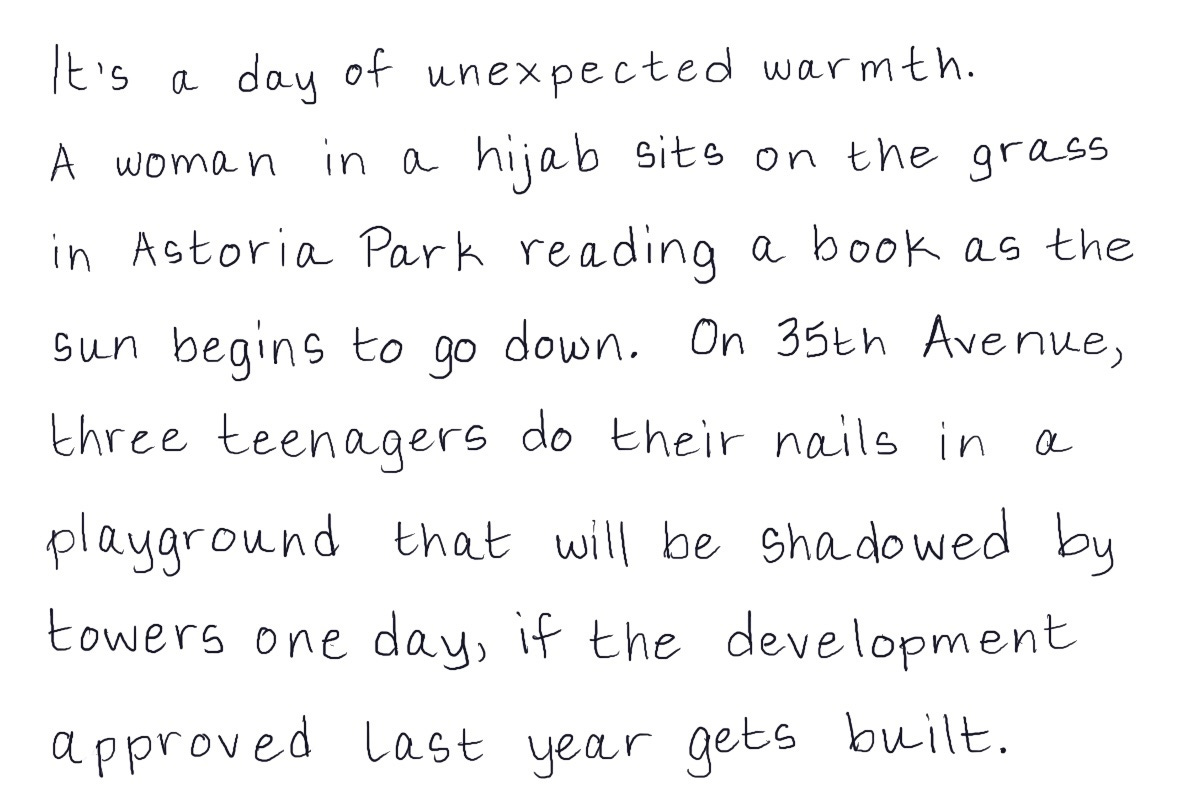 It's a day of unexpected warmth.
A woman in a hijab sits on the grass
in Astoria Park reading a book as the
sun begins to go down. On 35th Avenue,
three teenagers do their nails in a
playground that will be shadowed by
towers one day, if the development
approved last year gets built.